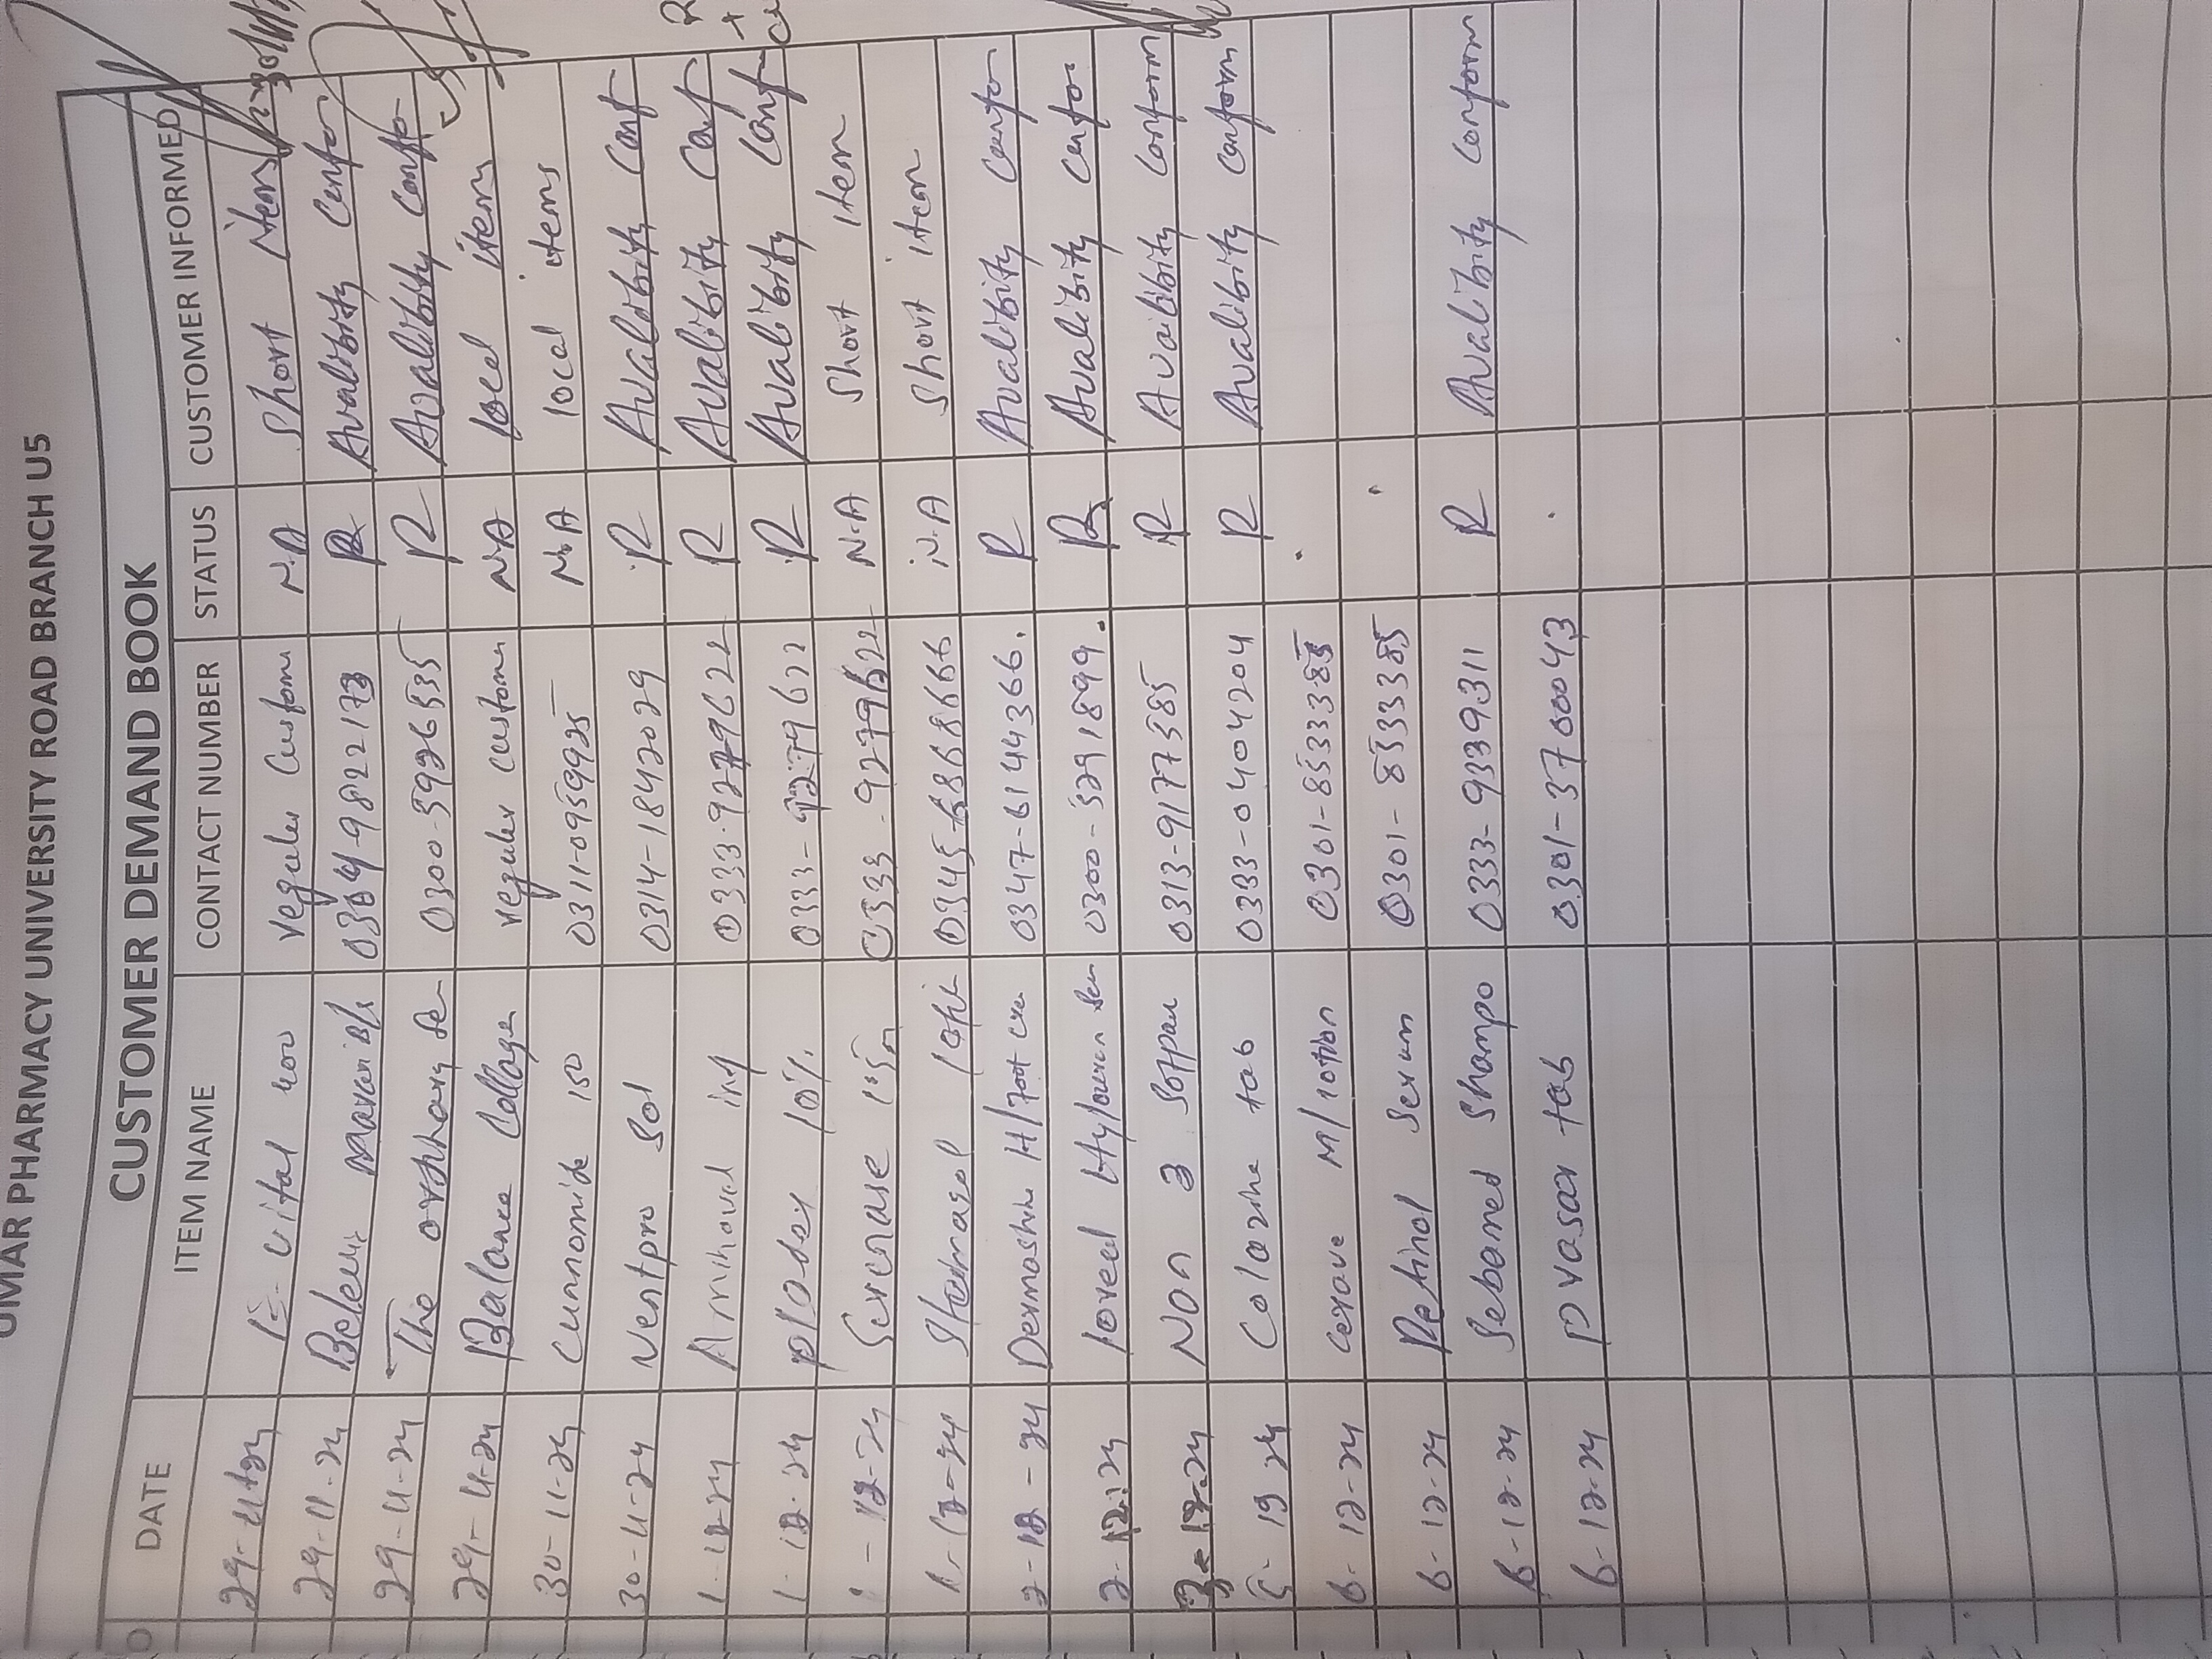 UMAR PHARMACY UNIVERSITY ROAD BRANCH U5
CUSTOMER DEMAND BOOK
DATE ITEM NAME CONTACT NUMBER STATUS CUSTOMER INFORMED
29-11-24 vital 400 reguler Custome N.A Short items
29-11-24 R Avalibity confo
29-11-24 The 0300-5926535 R Avalibity confo
29-11-24 Balance Collagen reguler custome N.A local items
30-11-24 150 0311-0959925 N.A local items
30-11-24 Ventpro sol 0314-1842029 R Avalibity Conf
1-12-24 inj 0333-9279622 R Avalibity Conf
1-12-24 plodex 10% 0333-9279622 R Avalibity Conf
1-12-24 Serenase 0333-9279622 N.A Short item
1-12-24 N.A Short item
2-12-24 Dermashine H/Foot 0347-6144366. R Avalibity confo
2-12-24 loreal 0300-3291899. R Avalibity confo
3-12-24 Non 3 0313-9177385 R Avalibity Conform
5-12-24 Colazine tab 0333-0404204 R Avalibity conform
6-12-24 cerave M/lotion 0301-8533385
6-12-24 Retinol Serum 0301-8533385
6-12-24 Sebamed Shampo 0333-9339311 R Avalibity conform
6-12-24 tab 0301-3700043